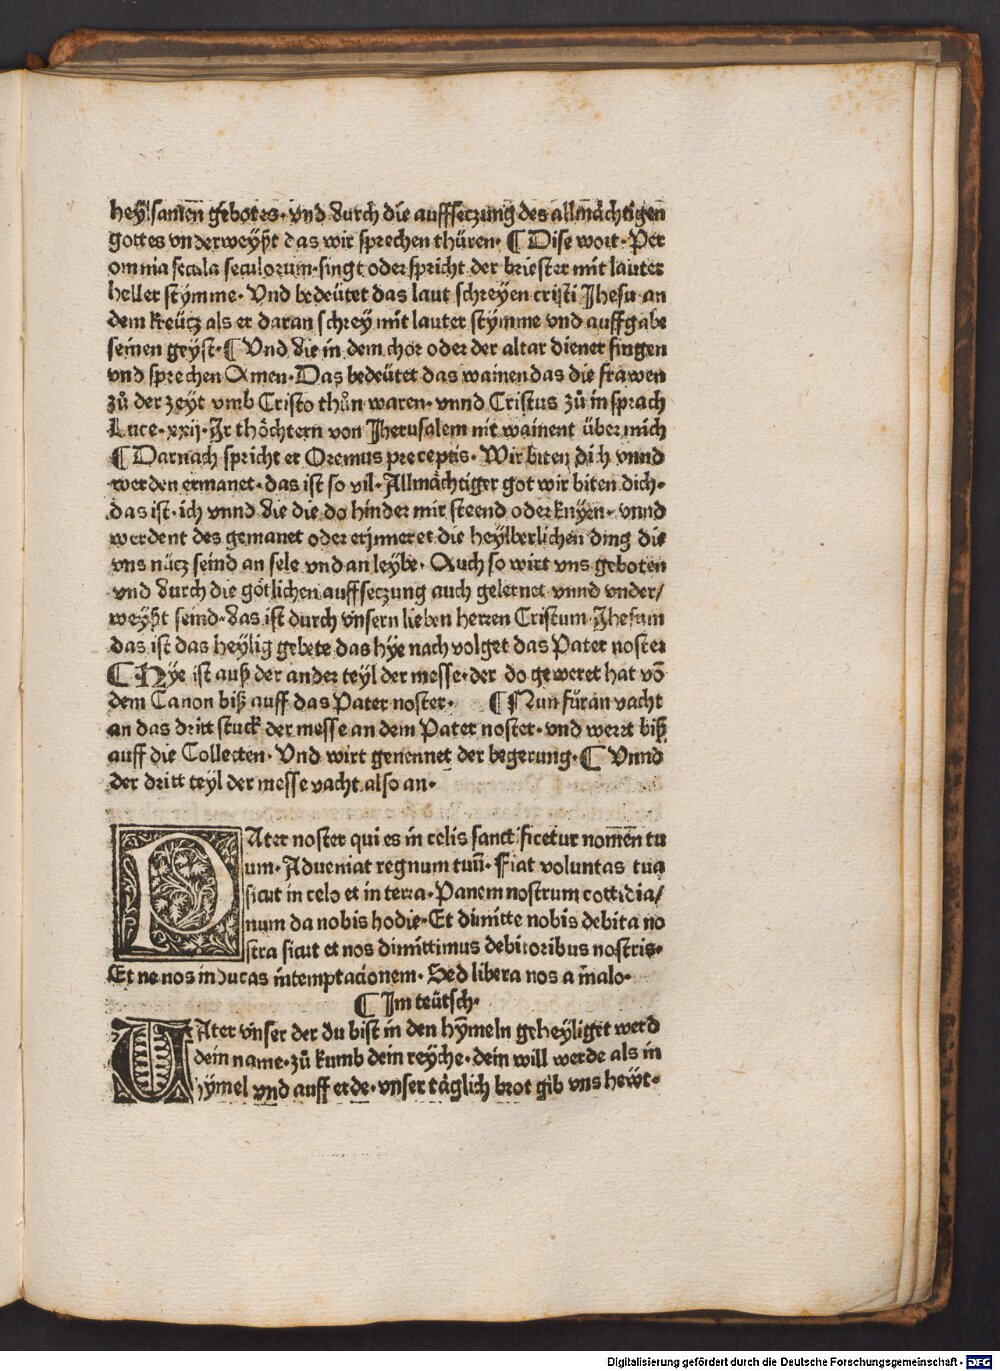 heÿlsamen̄ gebotes·vnd durch die auffseczung des allmåchtigen
gottes vnderweÿßt das wir sprechen thüren· ¶ Dise wort·Per
omnia secula seculorum·singt oder spricht der briester mit lauter
heller stÿmme·Vnd bedeütet das laut schreÿen cristi Jhesu an
dem kreücz als er daran schreÿ mit lauter stÿmme vnd auffgabe
seinen geÿst·¶ Vnd die in dem chor oder der altar dienet singen
vnd sprechen Amen·Das bedeütet das wainen das die frawen
zů der zeÿt vmb Cristo thůn waren·vnnd Cristus zů in sprach
Luce·xxij·Ir thöchtern von Jherusalem nit wainent über mich
¶ Darnach spricht er Oremus preceptis·Wir biten dich vnnd
werden ermanet·das ist so vil·Allmåchtiger got wir biten dich·
das ist·ich vnnd die die do hinder mir steend oder knÿen·vnnd
werdent des gemanet oder erjnneret die heÿlberlichen ding die
vns nücz seind an sele vnd an leÿbe·Auch so wirt vns geboten
vnd durch die götlichen auffseczung auch gelernet vnnd vnder/
weÿßt seind·das ist durch vnsern lieben herren Cristum Jhesum
das ist das heÿlig gebete das hÿe nach volget das Pater noster
¶ Hÿe ist auß der ander teÿl der messe·der do geweret hat vō
dem Canon biß auff das Pater noster· ¶ Nun füran vacht
an das dritt stuck der messe an dem Pater noster·vnd wert biß
auff die Collecten·Vnd wirt genennet der begerung·¶ Vnnd
der dritt teÿl der messe vacht also an·
PAter noster qui es in celis sanctificetur nomen̄ tu
um·Adveniat regnum tuū·Fiat voluntas tua
sicut in celo et in terra·Panem nostrum cottidia/
num da nobis hodie·Et dimitte nobis debita no
stra sicut et nos dimittimus debitoribus nostris·
Et ne nos inducas in temptacionem·Sed libera nos a malo·
¶ Im teütsch·
VAter vnser der du bist in den hÿmeln geheÿliget werd
dein name·zů kumb dein reÿche·dein will werde als in
hÿmel vnd auff erde·vnser tåglich brot gib vns hewt·
Digitalisierung gefördert durch die Deutsche Forschungsgemeinschaft - DFG